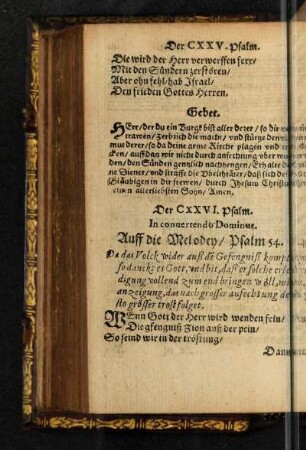 Der CXXV. Psalm.
Die wird der Herr verwerffen ferr/
Mit den Sündern zerstören/
Aber ohn fehl/ hab Israel/
Den frieden Gottes Herren.
Gebet.
HErr/ der du ein Burgk bist aller derer/ so dir
trawen/ Zerbrich die macht/ und stürtze den
mut derer/ so da deine arme Kirche plagen und
cken/ auff das wir nicht durch anfechtung uber
den/ den Sünden gentzlich nachhengen/ Erhalte
ne Diener/ und straffe die Ubelthäter/ daß sich
Gläubigen in dir frewen/ durch Jhesum Christum
deinen allerliebsten Sohn/ Amen.
Der CXXVI. Psalm.
In convertendo Dominus.
Auff die Melodey/ Psalm 54.
Da das Volck wider auß dē Gefengniß
so danckt es Gott, und bit, daß er solche
digung vollend zum end bringen wöll,
anzeigung, das nach grosser anfechtung
sto grösser trost folget.
WEnn Gott der Herr wird wenden fein/
Die gfengniß Zion auß der pein/
So seind wir in der tröstung/